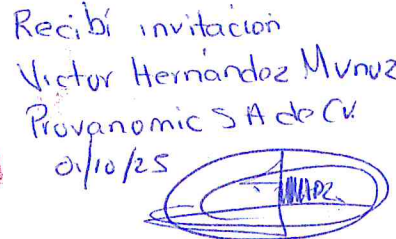 Recibí invitacion
Victor Hernández Munuz
Provanomic S A de CV.
01/10/25